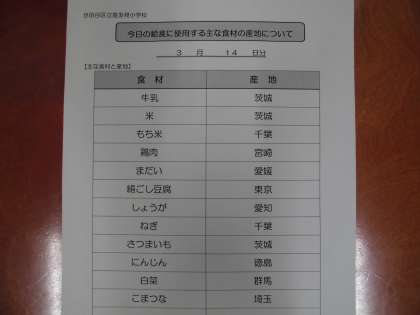 今日の給食に使用する主な食材の産地について
3 月 14 日分
【主な食材と産地】
食材 産地
牛乳 茨城
米 茨城
もち米 千葉
鶏肉 宮崎
まだい 愛媛
絹ごし豆腐 東京
しょうが 愛知
ねぎ 千葉
さつまいも 茨城
にんじん 徳島
白菜 群馬
こまつな 埼玉